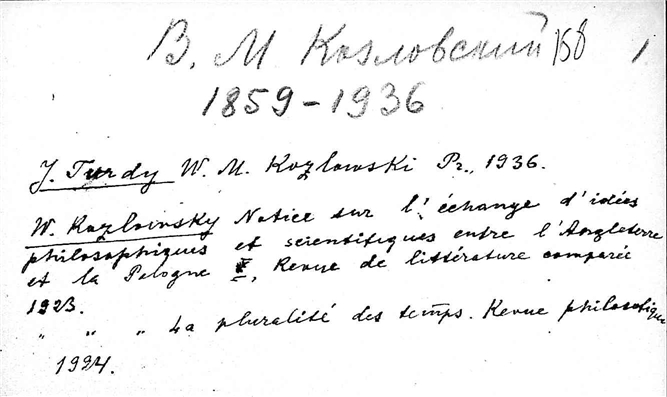 В. М Козловский 158 1
1859-1936
J. Turdy W. M. Kozlowski Pr., 1936.
W. Kozlowsky Notice sur l'échange d'idées
philosophiques et scientifiques entre l'Angleterre
et la Pologne I, Revue de littérature comparée
1923.
" " " La pluralité des temps. Revue philosophique
1924.